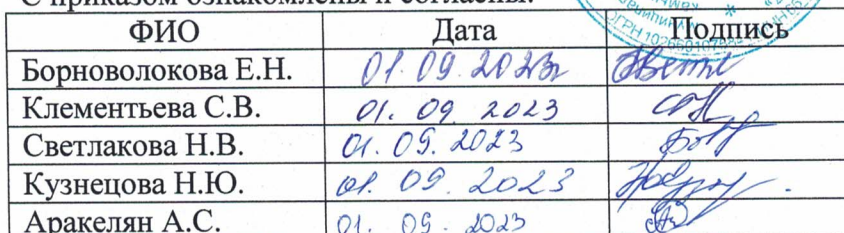 С приказом ознакомлены и согласны:
ФИО Дата Подпись
Борноволокова Е.Н. 01.09.2023г
Клементьева С.В. 01.09.2023
Светлакова Н.В. 01.09.2023
Кузнецова Н.Ю. 01.09.2023
Аракелян А.С. 01.09.2023